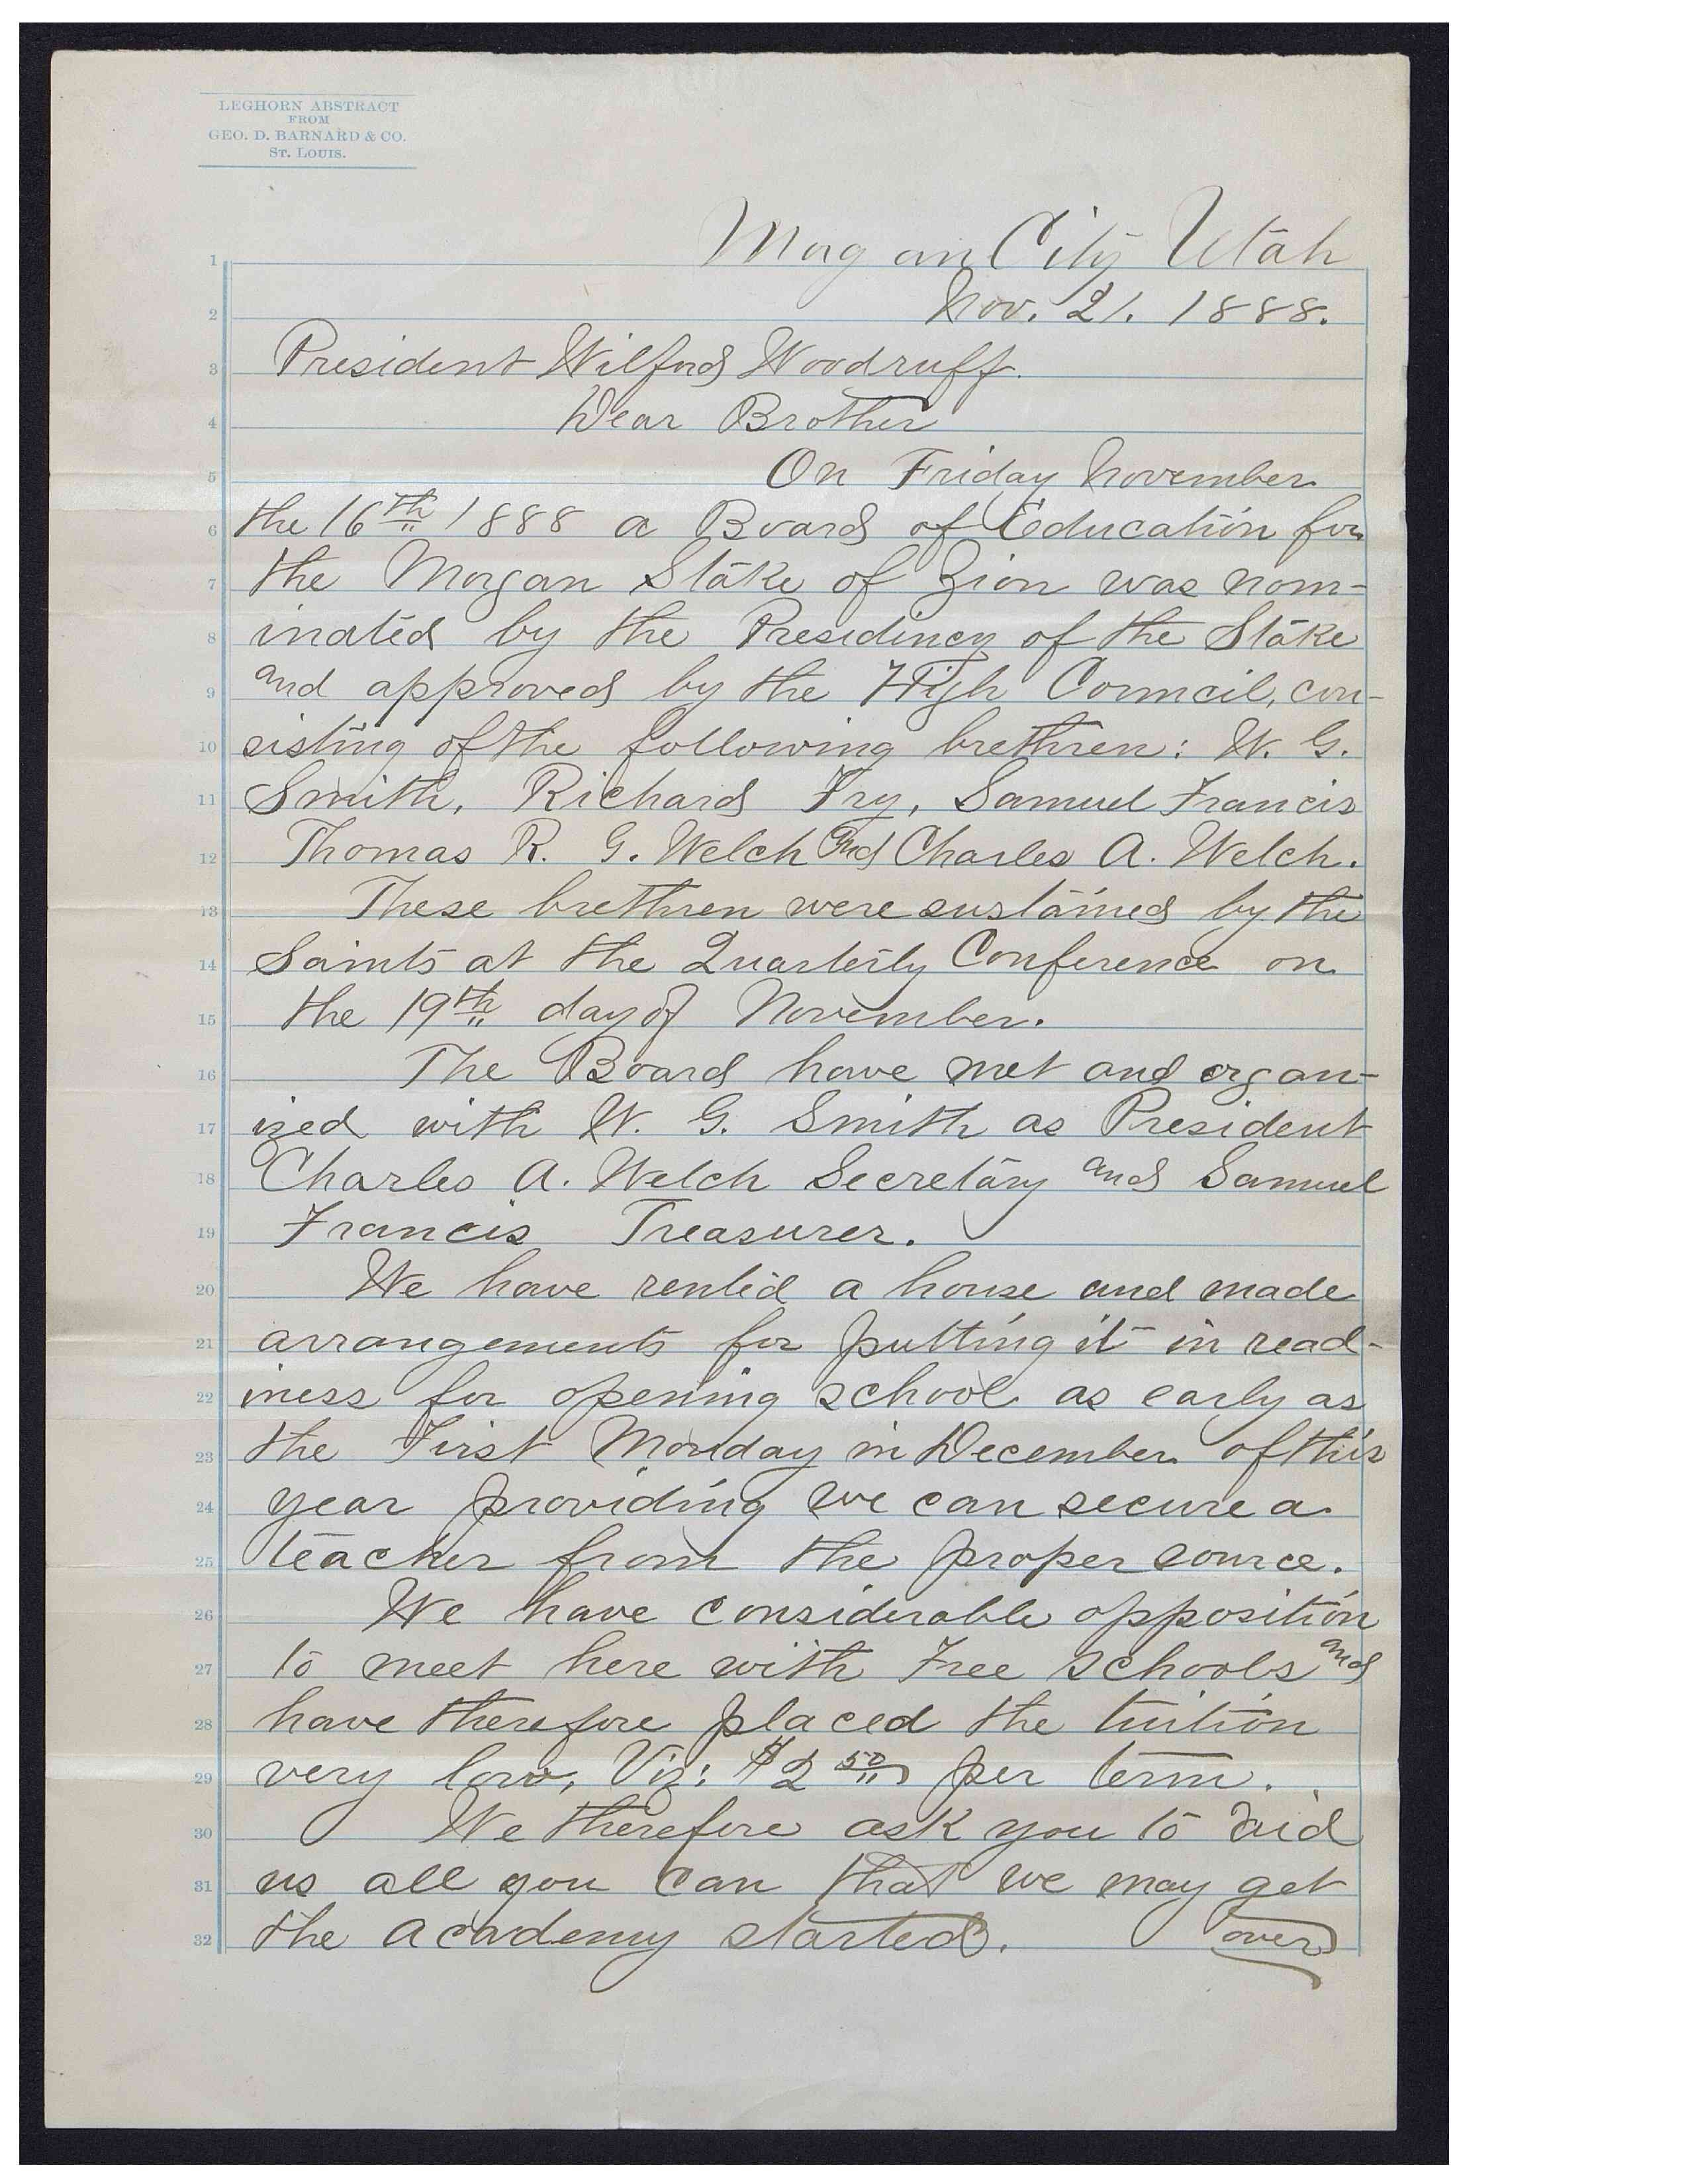 LEGHORN ABSTRACT
FROM
GEO. D. BARNARD & CO.
ST. LOUIS.
Morgan City Utah
1
Nov. 21. 1888.
2
President Wilford Woodruff.
3
Dear Brother
4
On Friday November
5
the 16th 1888 a Board of Education for
6
the Morgan Stake of Zion was nom-
7
inated by the Presidency of the Stake
8
and approved by the High Council, con-
9
sisting of the following brethren: W. G.
10
Smith, Richard Fry, Samuel Francis
11
Thomas R. G. Welch and Charles A. Welch.
12
These brethren were sustained by the
13
Saints at the Quarterly Conference on
14
the 19th day of November.
15
The Board have met and organ-
16
ized with W. G. Smith as President
17
Charles A. Welch Secretary and Samuel
18
Francis Treasurer.
19
We have rented a house and made
20
arrangements for putting it in read-
21
iness for opening school as early as
22
the First Monday in December of this
23
year providing we can secure a
24
teacher from the proper source.
25
We have considerable opposition
26
to meet here with Free Schools and
27
have therefore placed the tuition
28
very low, Viz: $2 50 per term.
29
We therefore ask you to aid
30
us all you can that we may get
31
the academy started. over
32